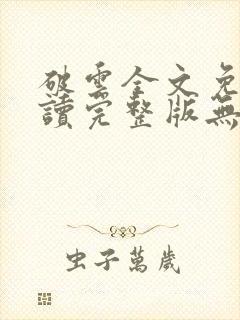 破雲全文免
讀完整版無
虫子萬歲